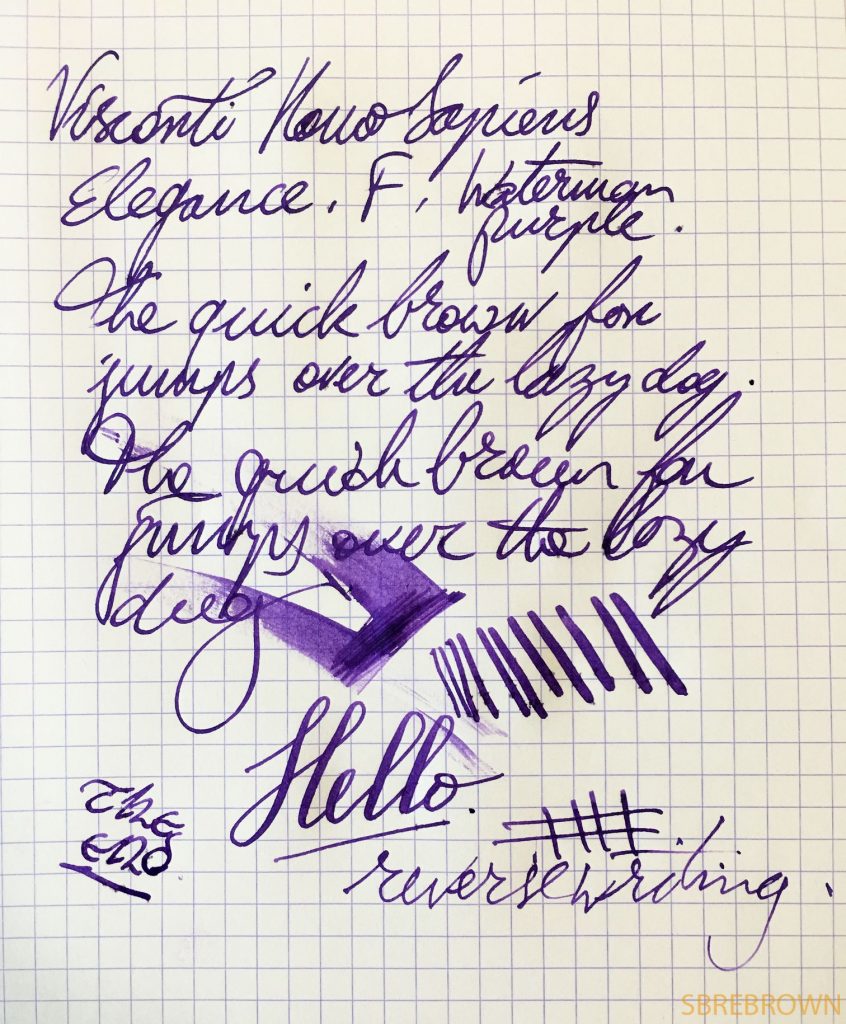 Visconti Homo Sapiens
Elegance, F, Waterman
purple.
The quick brown fox
jumps over the lazy dog.
The quick brown fox
jumps over the lazy
dog
Hello.
The
End
reverse writing.
SBREBROWN